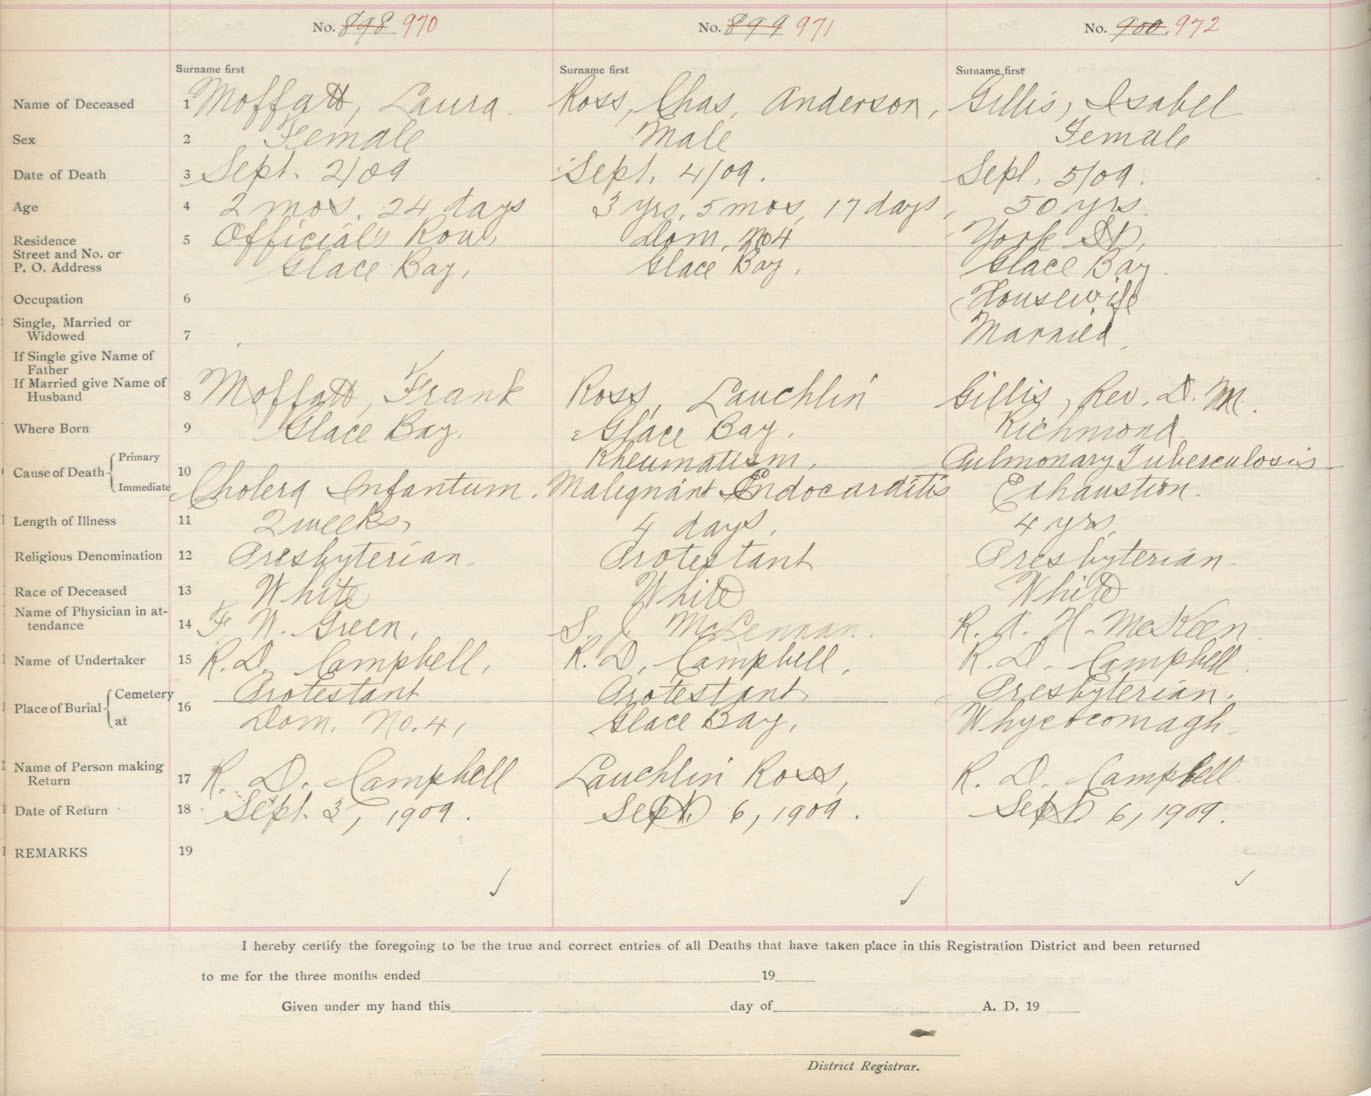 No. 898 970 No. 899 971 No. 900 972
Surname first Surname first Surname first
Name of Deceased 1 Moffatt, Laura. Ross, Chas, Anderson, Gillis, Isabel
Sex 2 Female Male Female
Date of Death 3 Sept. 2/09 Sept. 4/09. Sept. 5/09.
Age 4 2 mos. 24 days 3 yrs, 5 mos, 17 days, 50 yrs.
Residence 5 Official's Row, Dom, No 4 York St,
Street and No. or
P. O. Address Glace Bay, Glace Bay, Glace Bay.
Occupation 6 Housewife
Single, Married or
Widowed 7 Married.
If Single give Name of
Father
If Married give Name of
Husband 8 Moffatt, Frank Ross, Lauchlin Gillis, Rev. D. M.
Where Born 9 Glace Bay. Glace Bay. Richmond
Cause of Death Primary 10 Rheumatism, Pulmonary Tuberculosis
Immediate Cholera Infantum. Malignant Endocarditis Exhaustion.
Length of Illness 11 2 weeks, 4 days, 4 yrs,
Religious Denomination 12 Presbyterian. Protestant Presbyterian.
Race of Deceased 13 White White White
Name of Physician in at-
tendance 14 F. W. Green, S. J. McLennan. R. A. H. McKeen
Name of Undertaker 15 R. D. Campbell, R. D, Campbell, R. D. Campbell.
Place of Burial Cemetery 16 Protestant Protestant Presbyterian.
at Dom. No. 4, Glace Bay, Whycocomagh.
Name of Person making
Return 17 R. D. Campbell Lauchlin Ross, R. D. Campbell.
Date of Return 18 Sept. 3, 1909. Sept. 6, 1909. Sept 6, 1909.
REMARKS 19
I hereby certify the foregoing to be the true and correct entries of all Deaths that have taken place in this Registration District and been returned
to me for the three months ended 19
Given under my hand this day of A. D. 19
District Registrar.